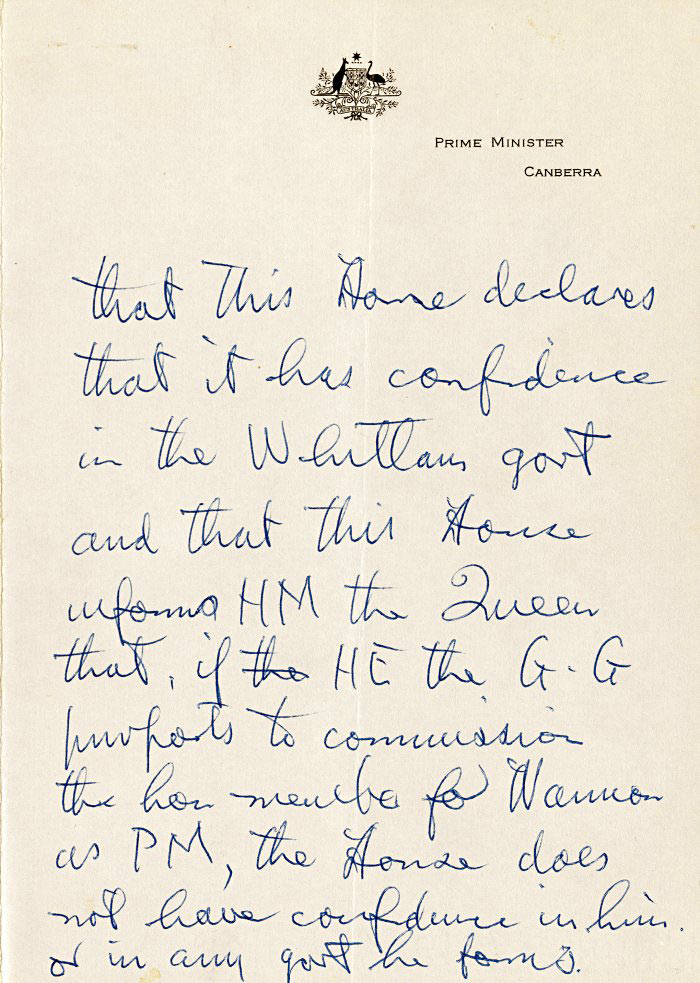 AUSTRALIA
PRIME MINISTER
CANBERRA
that this House declares
that it has confidence
in the Whitlam govt
and that this House
informs HM the Queen
that, if the HE the G-G
purports to commission
the hon member for Wannon
as PM, the House does
not have confidence in him.
or in any govt he forms.